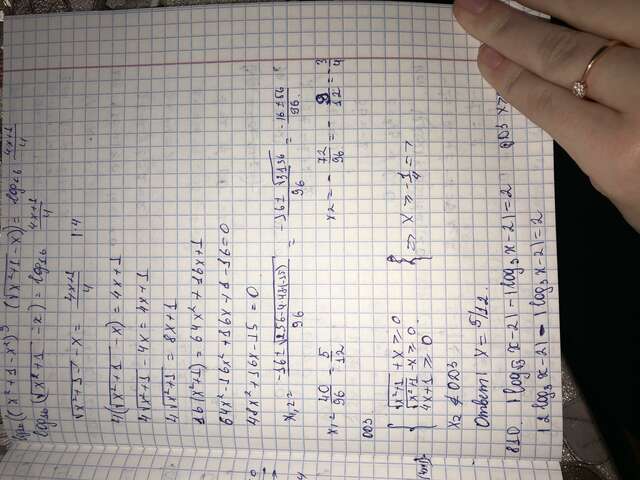 log₁₆ (√x²+1 - x) = log₁₆ 4x+1/4
√x²+1 - x = 4x+1/4 |·4
4(√x²+1 - x) = 4x+1
4√x²+1 - 4x = 4x+1
4√x²+1 = 8x+1
16(x²+1) = 64x²+16x+1
64x²-16x²+16x+1-16=0
48x²+16x-15=0
x₁,₂ = -16±√256-4·48(-15)/96 = -16±√3136/96 = -16±56/96
x₁ = 40/96 = 5/12 x₂ = -72/96 = -9/12 = -3/4
ОДЗ
{ √x²+1 + x ≥ 0
√x²+1 - x ≥ 0 { => x ≥ -1/4 =>
4x+1 ≥ 0
x₂ ∉ ОДЗ
Ответ: x = 5/12
810. |log√3 x-2| - |log₃ x-2| = 2 ОДЗ x>
|2 log₃ x-2| - |log₃ x-2| = 2